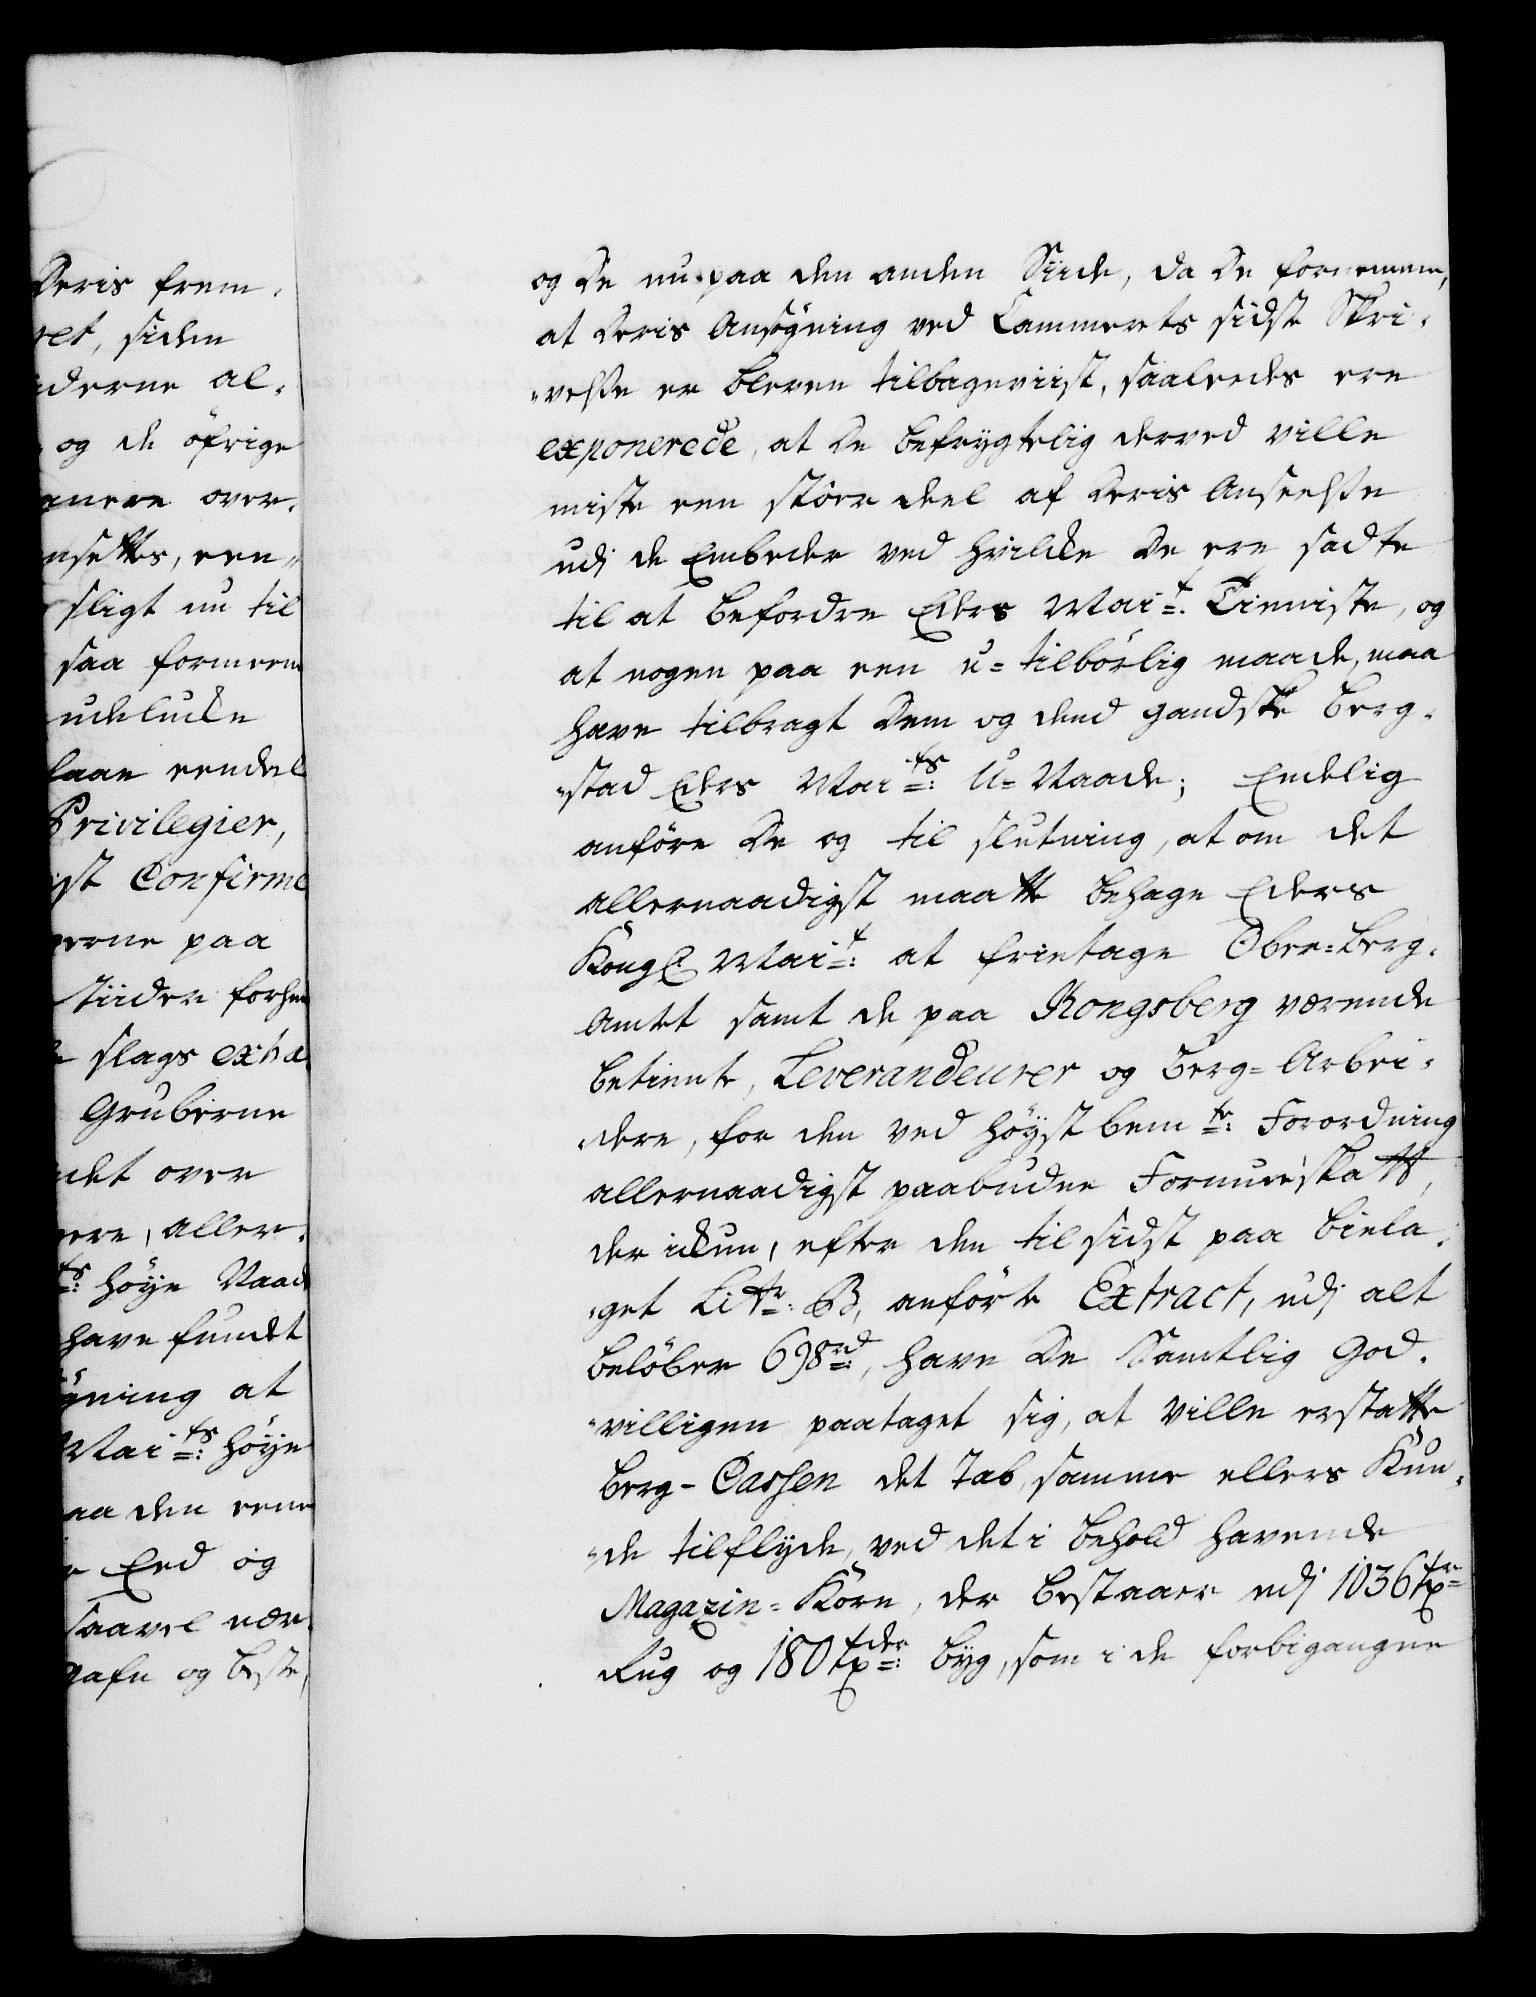 Deris frem-
ret, siden
derne al-
og de öfrige
mere over-
nsettes, een-
sligt nu til
saa formeene
udelucke
laan eendel
Privilegier,
st Confirme
erne paa
Tiider forhen
slags extra
Gruberne
det over
ere, aller-
ts: höye Naad
have fundet
gning at
Mai ts: höye
aa den eene
Eed og
saavel nær-
gafn og beste,
og De nu paa den anden Siide, da De fornemme,
at Deris Ansögning ved Cammerets sidste Skri-
velse er bleven tilbageviist, saaledes ere
exponerede, at De befrygtelig derved ville
miste een störe deel af Deris Anseelse
udj de Embeder ved hvilcke De ere sadte
til at befordre Eders Mai t: Tieniste, og
at nogen paa een u-tilbörlig maade, maa
have tilbragt Dem og dend gandske Berg-
stad Eders Mai ts: U-Naade; Endelig
anföre De og til slutning, at om det
allernaadigst maatte behage Eders
Kongl Mai t: at fritage Ober-Berg-
Amtet samt de paa Kongsberg værende
betiente, Leverandeurer og Berg-Arbei-
dere, for den ved höyst bem te: Forordning
allernaadigst paabudne Formueskatt,
der ickun, efter den til sidst paa bila-
get Littr: B, anförte Extract, udj alt
belöber 698 rd:, have De Samtlig God-
villigen paataget sig, at ville erstatte
Berg-Cassen det Tab, samme ellers Kun-
de tilflyde, ved det i behold havende
Magazin-Korn, der bestaaer udj 1036 Tr
Rug og 180 Tder: byg, som i de forbigangne